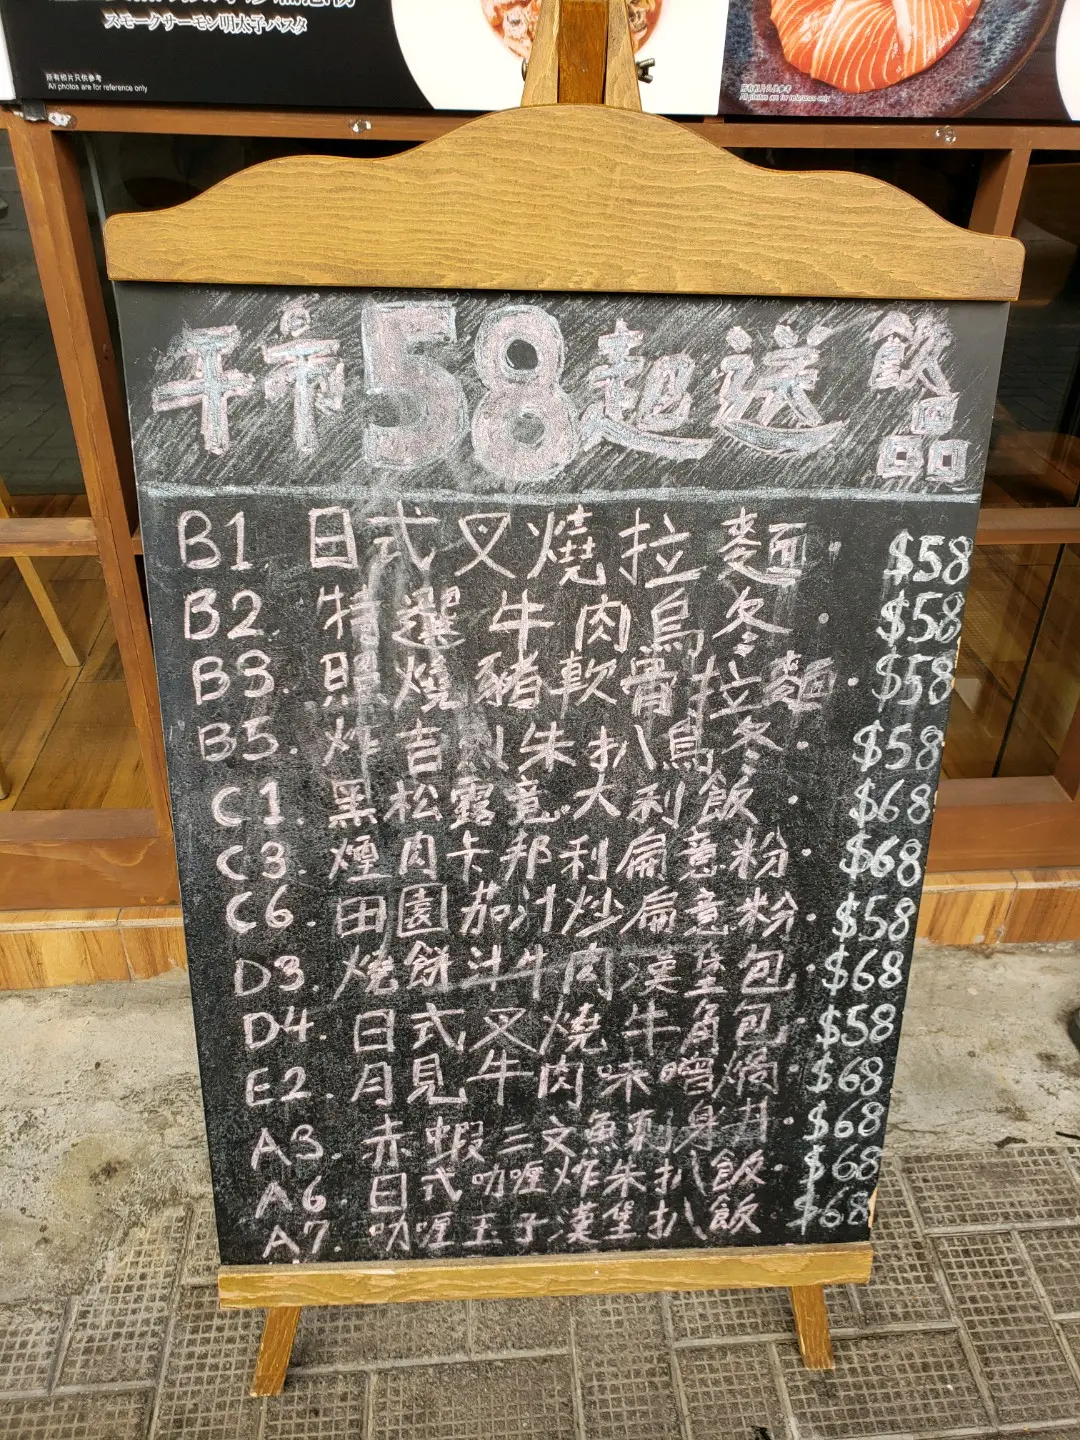 スモークサーモン明太子パスタ
所有相片只供參考
All photos are for reference only
所有相片只供參考
All photos are for reference only
平市58起送飲品
B1. 日式叉燒拉麵. $58
B2. 特選牛肉烏冬. $58
B3. 照燒豬軟骨拉麵. $58
B5. 炸吉列朱扒烏冬. $58
C1. 黑松露意大利飯. $68
C3. 煙肉卡邦利扁意粉. $68
C6. 田園茄汁炒扁意粉. $58
D3. 燒餅斗牛肉漢堡包. $68
D4. 日式叉燒牛角包. $58
E2. 月見牛肉味噌鍋. $68
A3. 赤蝦三文魚刺身丼. $68
A6. 日式咖喱炸朱扒飯. $68
A7. 咖喱玉子漢堡扒飯 $68